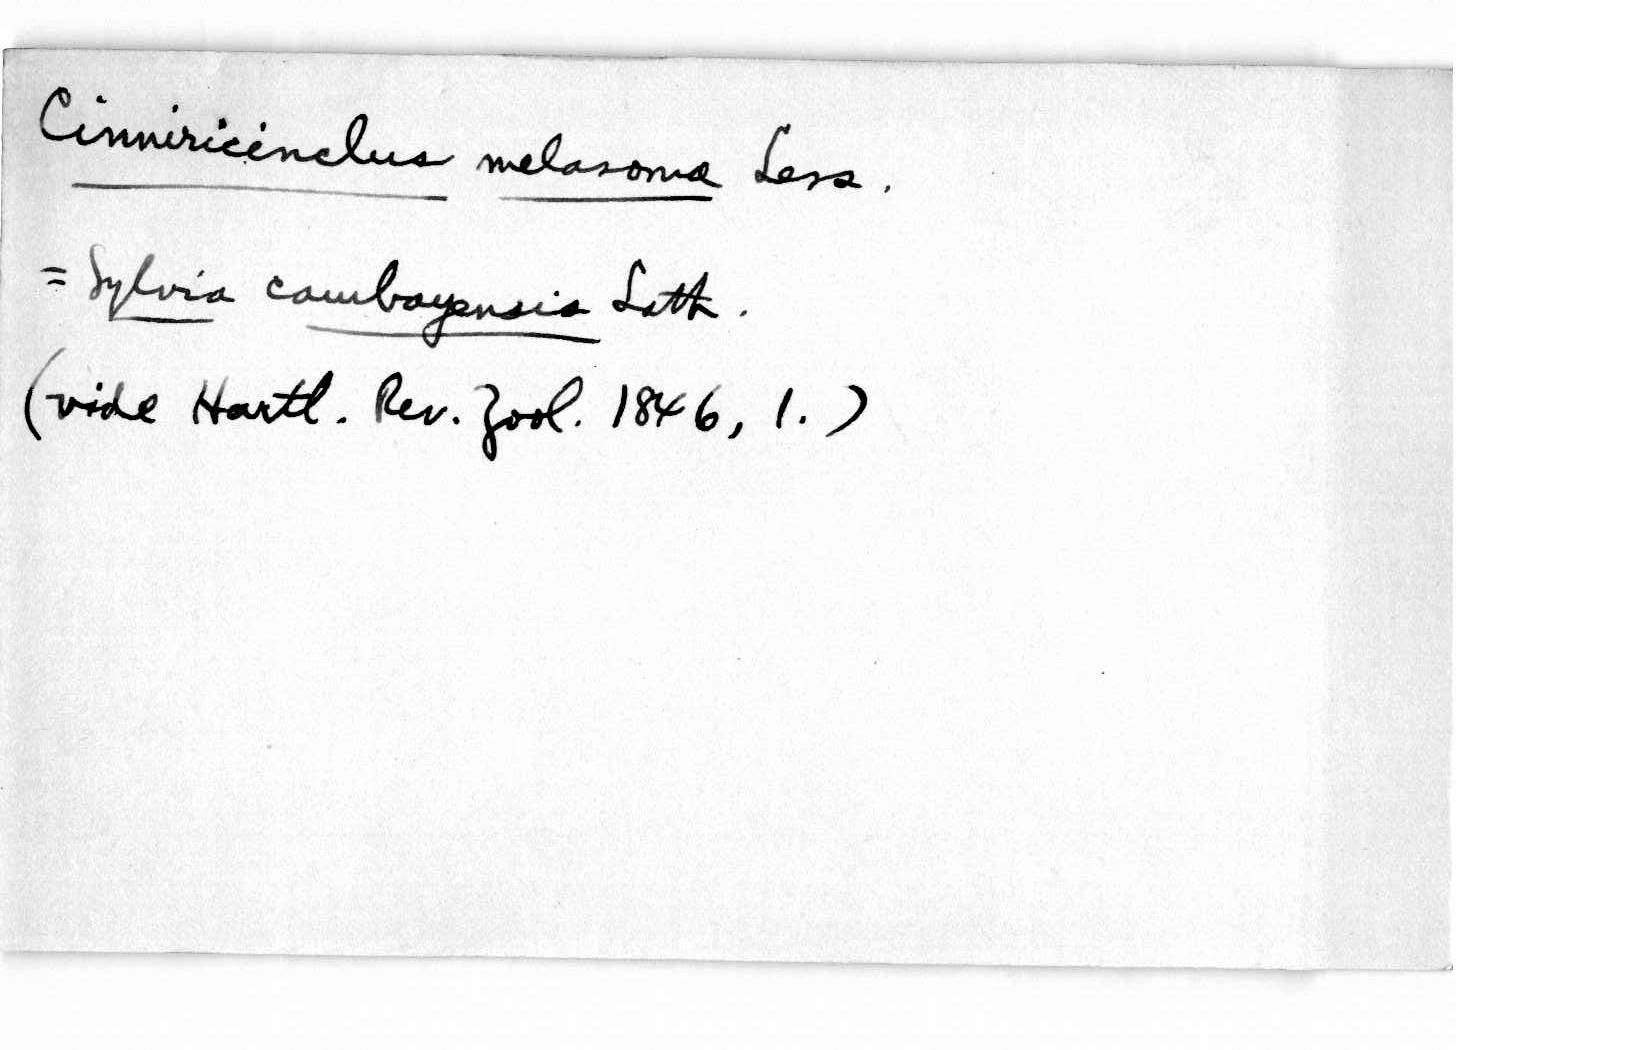 Cinniricinclus melasoma Less.
= Sylvia cambayensis Lath.
(vide Hartl. Rev. Zool. 1846, 1.)